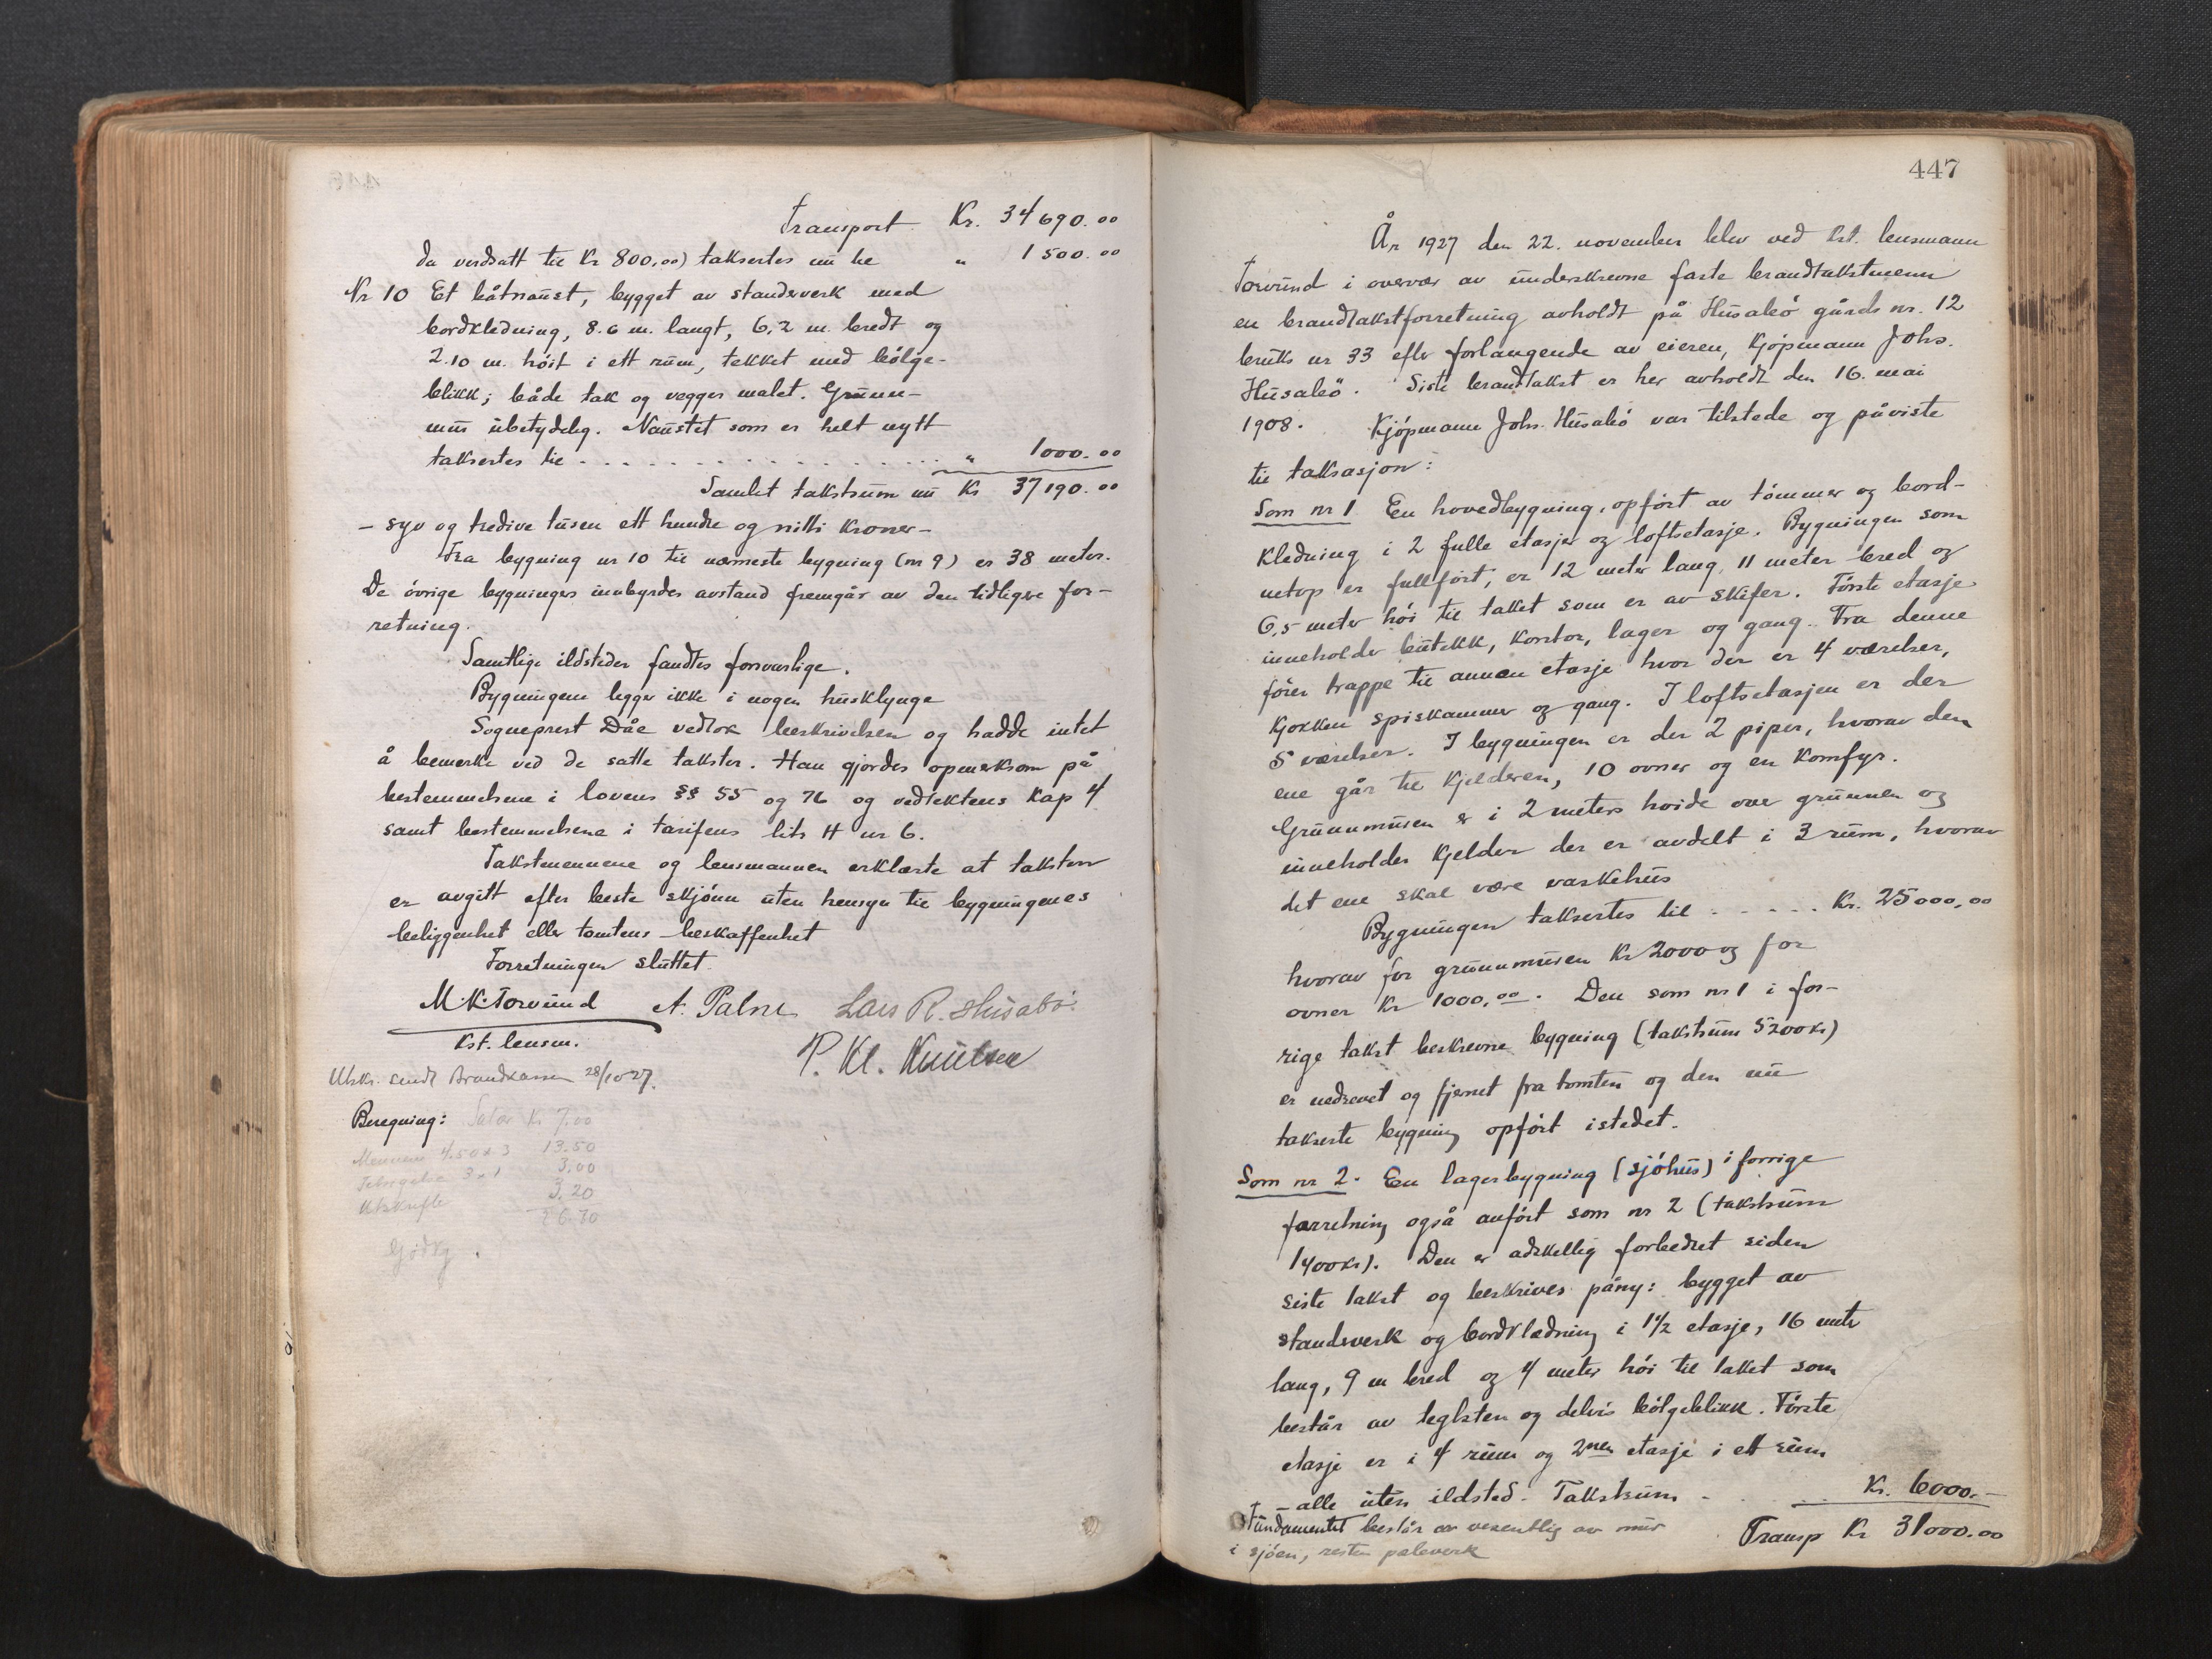 Transport Kr. 34690.00
da verdsatt til Kr 800,00) taksertes nu til " 1500.00
Nr 10 Et båtnaust, bygget av standverk med
bordkledning, 8.6 m. langt, 6,2 m. bredt og
2.10 m. höit i ett rum, tekket med bölge-
blikk; både tak og vegger malet. Grunn-
mur ubetydelig. Naustet som er helt nytt
taksertes til . . . . . . . . " 1000.00
Samlet takstsum nu Kr 37190.00
- syv og tredive tusen ett hundre og nitti kroner -
Fra bygning nr 10 til nærmeste bygning (nr 9) er 38 meter.
De övrige bygningers innbyrdes avstand fremgår av den tidligere for-
retning.
Samtlige ildsteder fandtes forsvarlige.
Bygningene ligger ikke i nogen husklynge
Sogneprest Dåe vedtok beskrivelsen og hadde intet
å bemerke ved de satte takster. Han gjordes opmerksom på
bestemmelsene i lovens §§ 55 og 76 og vedtektens Kap 4
samt bestemmelsene i tarifens lits H nr 6.
Takstmennene og lensmannen erklærte at taksten
er avgitt efter beste skjönn uten hensyn til bygningenes
beliggenhet eller tomtens beskaffenhet
Forretningen sluttet.
M. K. Torvund A. Palne Lars R. Husabö.
Kst. lensm. P. Kl. Knutsen
Utskr. sendt Brandkassen 28/10 27.
Beregning: Salær Kr 7.00
Mennene 4.50 x 3 13.50
3 x 1 3.00
Utskrifte 3.20
26.70
Godkj.
447
År 1927 den 22. november blev ved kst. lensmann
Torvund i overvær av underskrevne faste brandtakstmenn
en brandtakstforretning avholdt på Husabö gårds nr. 12
bruks nr 33 efter forlangende av eieren, Kjöpmann Johs.
Husabö. Siste brandtakst er her avholdt den 16. mai
1908. Kjöpmann Johs. Husabö var tilstede og påviste
til taksasjon:
Som nr 1 En hovedbygning, opfört av tömmer og bord-
kledning i 2 fulle etasjer og loftsetasje. Bygningen som
netop er fullfört, er 12 meter lang, 11 meter bred og
6,5 meter höi til taket som er av skifer. Förste etasje
inneholder butikk, kontor, lager og gang. Fra denne
förer trappe til annen etasje hvor der er 4 værelser,
kjökken spiskammer og gang. I loftsetasjen er der
5 værelser. I bygningen er der 2 piper, hvorav den
ene går til kjelderen, 10 ovner og en komfyr.
Grunnmuren er i 2 meters höide over grunnen og
inneholder kjelder der er avdelt i 3 rum, hvorav
det ene skal være vaskehus
Bygningen taksertes til . . . . . Kr. 25000,00
hvorav for grunnmuren Kr 2000 og for
ovner Kr 1000,00. Den som nr 1 i for-
rige takst beskrevne bygning (takstsum 5200 kr)
er nedrevet og fjernet fra tomten og den nu
takserte bygning opfört istedet.
Som nr 2. En lagerbygning (sjöhus) i forrige
forretning også anfört som nr 2 (takstsum
1400 kr). Den er adskillig forbedret siden
siste takst og beskrives påny: bygget av
standverk og bordklædning i 1½ etasje, 16 meter
lang, 9 m bred og 4 meter höi til taket som
består av teglsten og delvis bölgeblikk. Förste
etasje er i 4 rum og 2nen etasje i ett rum
- alle uten ildsted. Takstsum . . . Kr. 6000.-
Fundamentet består av vesentlig av mur
i sjöen, resten peleverk
Transp Kr 31000.00